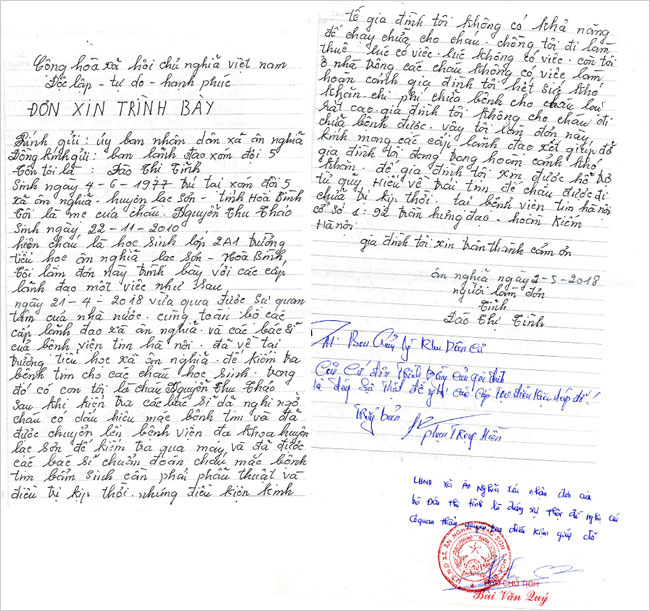 Cộng hòa xã hội chủ nghĩa việt nam
Độc lập - tự do - hạnh phúc
ĐƠN XIN TRÌNH BÀY
Kính gửi: ủy ban nhân dân xã ân nghĩa
Đồng kính gửi: ban lãnh đạo xóm đồi 5
Tên tôi là: Đào Thị Tĩnh
Sinh ngày 4-6-1977 trú tại xóm đồi 5
xã ân nghĩa - huyện lạc sơn - tỉnh Hoà Bình
Tôi là mẹ của cháu: Nguyễn Thu Thảo
Sinh ngày, 22-11-2010,
hiện cháu là học sinh lớp 2A1 trường
tiểu học ân nghĩa lạc sơn - Hoà Bình,
Tôi làm đơn này trình bày với các cấp
lãnh đạo một việc như sau
ngày 21-4-2018 vừa qua được sự quan
tâm của nhà nước. cùng toàn bộ các
cấp lãnh đạo xã ân nghĩa và các bác sĩ
của bệnh viện tim hà nội. đã về tại
trường tiểu học xã ân nghĩa. để kiểm tra
bệnh tim cho các cháu học sinh. trong
đó có con tôi là cháu Nguyễn Thu Thảo
sau khi kiểm tra các bác sĩ đã nghi ngờ
cháu có dấu hiệu mắc bệnh tim và đã
được chuyển lên bệnh viện đa khoa huyện
lạc sơn để kiểm tra qua máy và đã được
các bác sĩ chuẩn đoán cháu mắc bệnh
tim bẩm sinh cần phải phẫu thuật và
điều trị kịp thời. nhưng điều kiện kinh
tế gia đình tôi không có khả năng
để chạy chữa cho cháu. chồng tôi đi làm
thuê lúc có việc. lúc không có việc. còn tôi
ở nhà trông các cháu không có việc làm
hoàn cảnh gia đình tôi hết sức khó
khăn chi phí chữa bệnh cho cháu lại
rất cao gia đình tôi không cho cháu đi
chữa bệnh được. vậy tôi làm đơn này
kính mong các cấp lãnh đạo xét giúp đỡ
gia đình tôi đang trong hoàn cảnh khó
khăn. để gia đình tôi xin được hỗ trợ
từ quỹ Hiểu về trái tim để cháu được đi
chữa trị kịp thời. tại bệnh viện tim hà nội
cơ sở 1: 92 trần hưng đạo - hoàn kiếm
Hà nội
gia đình tôi xin trân thành cảm ơn
ân nghĩa ngày 2-5-2018
người làm đơn
Tĩnh
Đào Thị Tĩnh
Ban Quản lý Khu Dân Cư
Căn Cứ đơn Trình bày của gia đình
là đúng Sự Thật đề nghị các Cấp tạo điều kiện giúp đỡ!
Trưởng bản
UBND xã Ân Nghĩa xác nhận đơn của
bà Đào Thị Tĩnh là đúng sự thật đề nghị các
cơ quan tạo điều kiện giúp đỡ
CHỦ TỊCH
Bùi Văn Quý